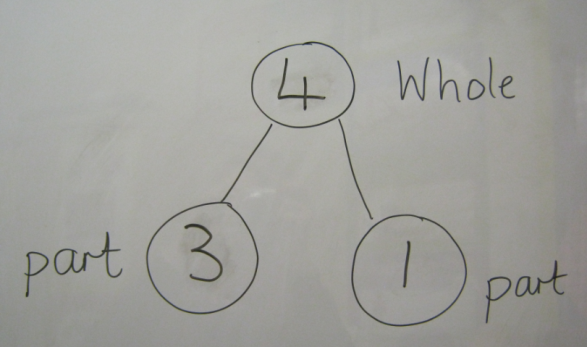 4 Whole
part 3 1 part